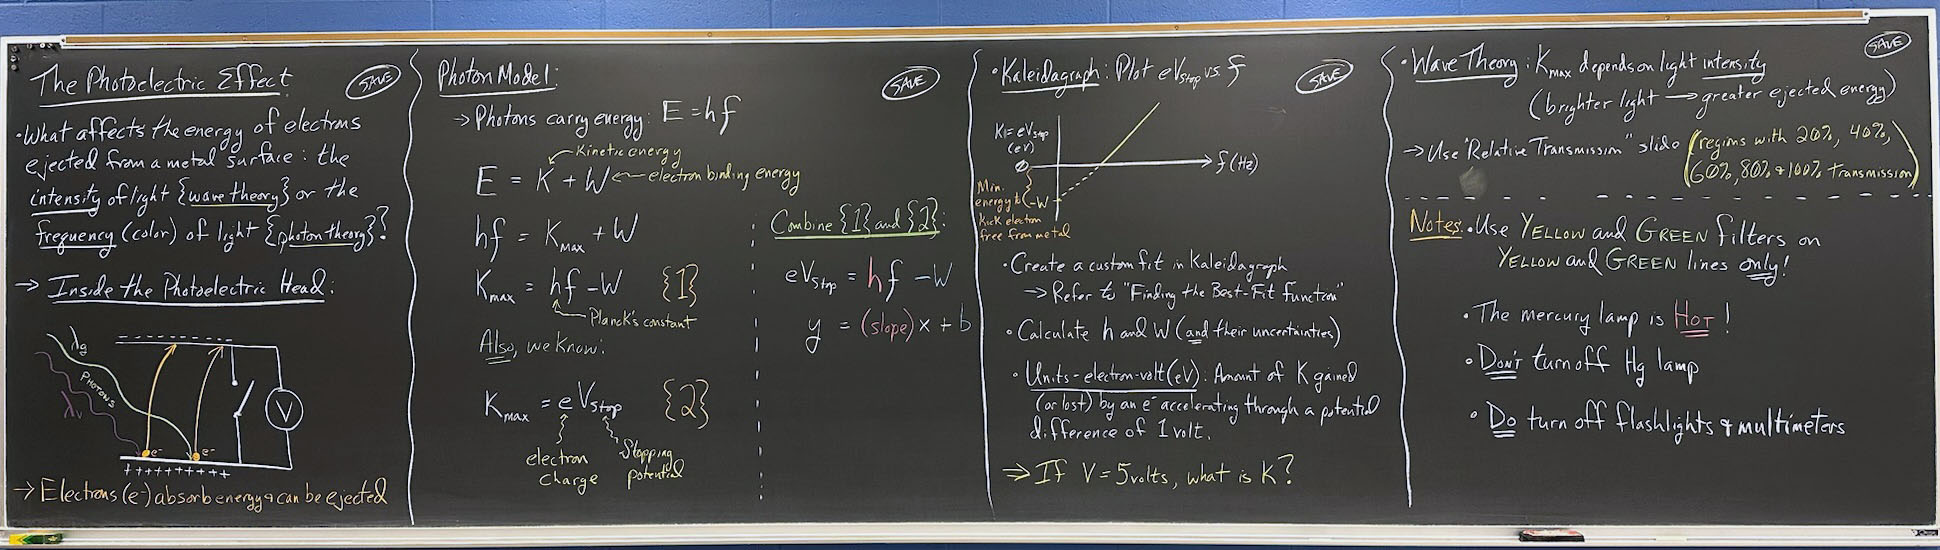 The Photoelectric Effect
SAVE
•What affects the energy of electrons
ejected from a metal surface: the
intensity of light {wave theory} or the
frequency (color) of light {photon theory}?
→ Inside the Photoelectric Head:
λg
PHOTONS
λv
V
e-
e-
+++++++++
→ Electrons (e-) absorb energy & can be ejected
Photon Model:
SAVE
→ Photons carry energy: E = hf
Kinetic energy
E = K + W ← electron binding energy
hf = Kmax + W
Kmax = hf - W {1}
Planck's constant
Also, we know:
Kmax = eVstop {2}
electron charge
Stopping potential
Combine {1} and {2}:
eVstop = hf - W
y = (slope)x + b
•Kaleidagraph: Plot eVstop vs. f
SAVE
K = eVstop
(eV)
f (Hz)
Min.
energy to
kick electron
free from metal
-W
•Create a custom fit in Kaleidagraph
→ Refer to "Finding the Best-Fit Function"
•Calculate h and W (and their uncertainties)
•Units - electron-volt (eV): Amount of K gained
(or lost) by an e- accelerating through a potential
difference of 1 volt.
⇒ If V = 5 volts, what is K?
SAVE
•Wave Theory: Kmax depends on light intensity
(brighter light → greater ejected energy)
→ Use "Relative Transmission" slide (regions with 20%, 40%,
60%, 80% & 100% Transmission)
Notes: •Use YELLOW and GREEN filters on
YELLOW and GREEN lines only!
•The mercury lamp is HOT!
•Don't turn off Hg lamp
•Do turn off flashlights & multimeters